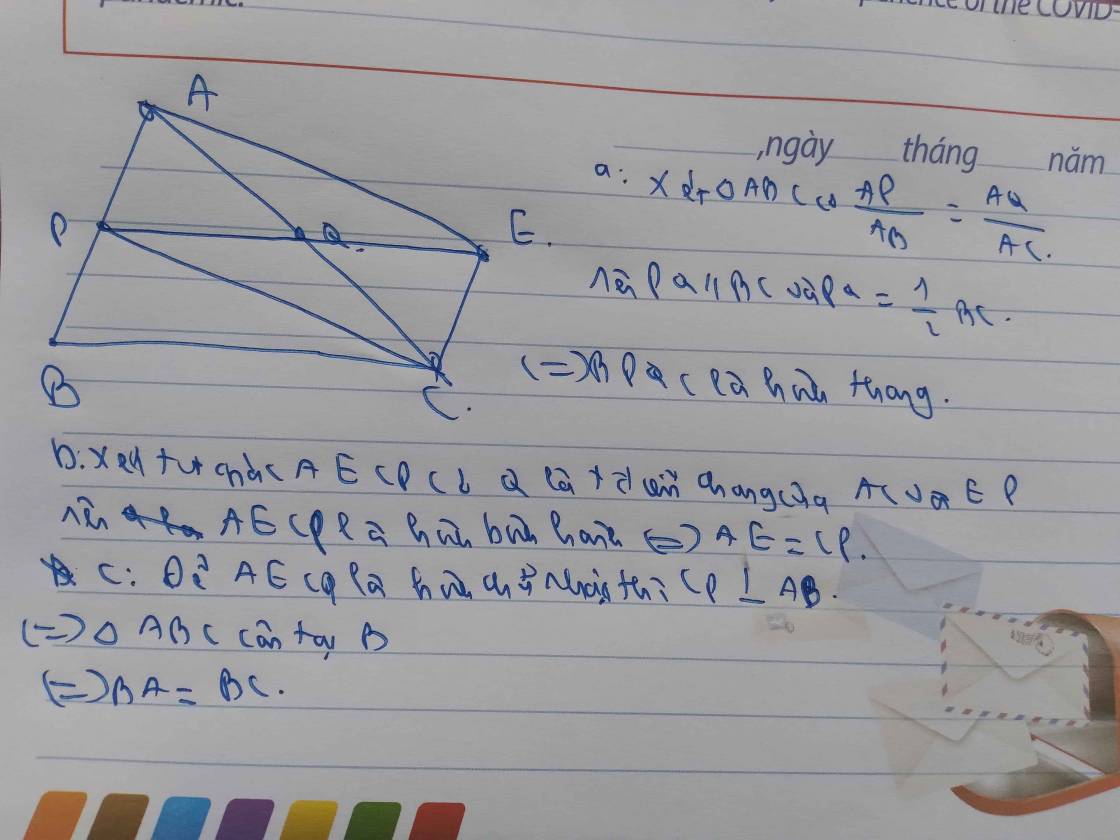 pandemic.
of the COVID-
,ngày tháng năm
A
P
Q.
E.
B
C.
a: Xét △ABC có AP/AB = AQ/AC.
nên PQ // BC và PQ = 1/2 BC.
(=) BPQC là hình thang.
b: Xét tứ giác AECP có Q là trung điểm chung của AC và EP
nên AECP là hình bình hành (=) AE = CP.
c: Để AECP là hình chữ nhật thì CP ⊥ AB.
(=) △ ABC cân tại B
(=) BA = BC.